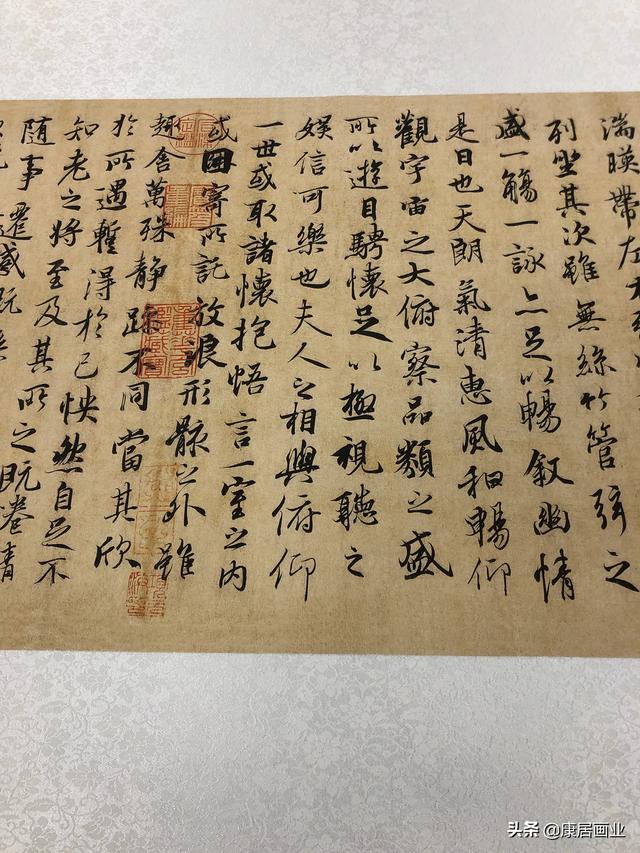 湍暎帶左
列坐其次雖無絲竹管弦之
盛一觴一詠亦足以暢敘幽情
是日也天朗氣清惠風和暢仰
觀宇宙之大俯察品類之盛
所以遊目騁懷足以極視聽之
娛信可樂也夫人之相與俯仰
一世或取諸懷抱悟言一室之內
或因寄所託放浪形骸之外雖
趣舍萬殊靜躁不同當其欣
於所遇蹔得於己怏然自足不
知老之將至及其所之既惓情
隨事遷感
头条 @康居画业